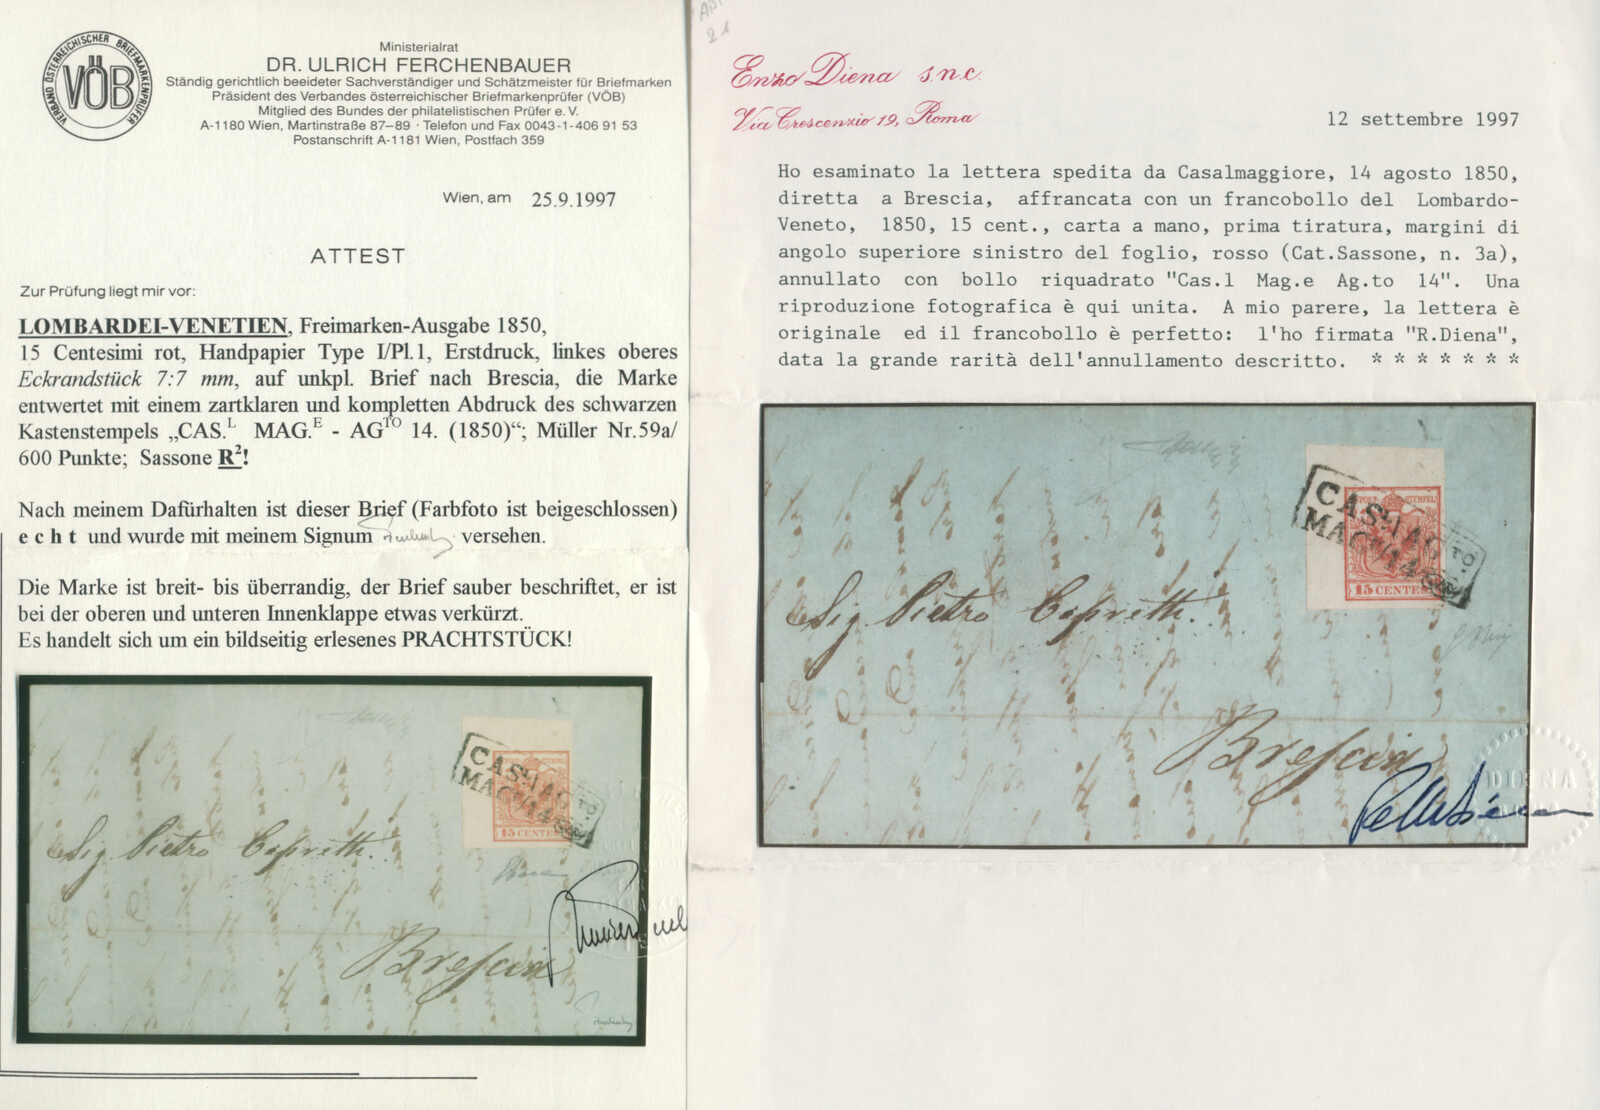 VERBAND ÖSTERREICHISCHER BRIEFMARKENPRÜFER
VÖB
Ministerialrat
DR. ULRICH FERCHENBAUER
Ständig gerichtlich beeideter Sachverständiger und Schätzmeister für Briefmarken
Präsident des Verbandes österreichischer Briefmarkenprüfer (VÖB)
Mitglied des Bundes der philatelistischen Prüfer e. V.
A-1180 Wien, Martinstraße 87–89 · Telefon und Fax 0043-1-406 91 53
Postanschrift A-1181 Wien, Postfach 359
Wien, am 25.9.1997
ATTEST
Zur Prüfung liegt mir vor:
LOMBARDEI-VENETIEN, Freimarken-Ausgabe 1850,
15 Centesimi rot, Handpapier Type I/Pl.1, Erstdruck, linkes oberes
Eckrandstück 7:7 mm, auf unkpl. Brief nach Brescia, die Marke
entwertet mit einem zartklaren und kompletten Abdruck des schwarzen
Kastenstempels „CAS.L MAG.E - AGTO 14. (1850)“; Müller Nr.59a/
600 Punkte; Sassone R2!
Nach meinem Dafürhalten ist dieser Brief (Farbfoto ist beigeschlossen)
echt und wurde mit meinem Signum versehen.
Die Marke ist breit- bis überrandig, der Brief sauber beschriftet, er ist
bei der oberen und unteren Innenklappe etwas verkürzt.
Es handelt sich um ein bildseitig erlesenes PRACHTSTÜCK!
CAS.L AG.TO
MAG.E 14
15 CENTES
Sig. Pietro Capretti.
Brescia
Enzo Diena s.n.c.
Via Crescenzio 19, Roma
12 settembre 1997
Ho esaminato la lettera spedita da Casalmaggiore, 14 agosto 1850,
diretta a Brescia, affrancata con un francobollo del Lombardo-
Veneto, 1850, 15 cent., carta a mano, prima tiratura, margini di
angolo superiore sinistro del foglio, rosso (Cat.Sassone, n. 3a),
annullato con bollo riquadrato "Cas.l Mag.e Ag.to 14". Una
riproduzione fotografica è qui unita. A mio parere, la lettera è
originale ed il francobollo è perfetto: l'ho firmata "R.Diena",
data la grande rarità dell'annullamento descritto. * * * * * * *
STEMPEL
CAS.L AG.TO
MAG.E 14
15 CENTES
Sig. Pietro Capretti.
Brescia
DIENA